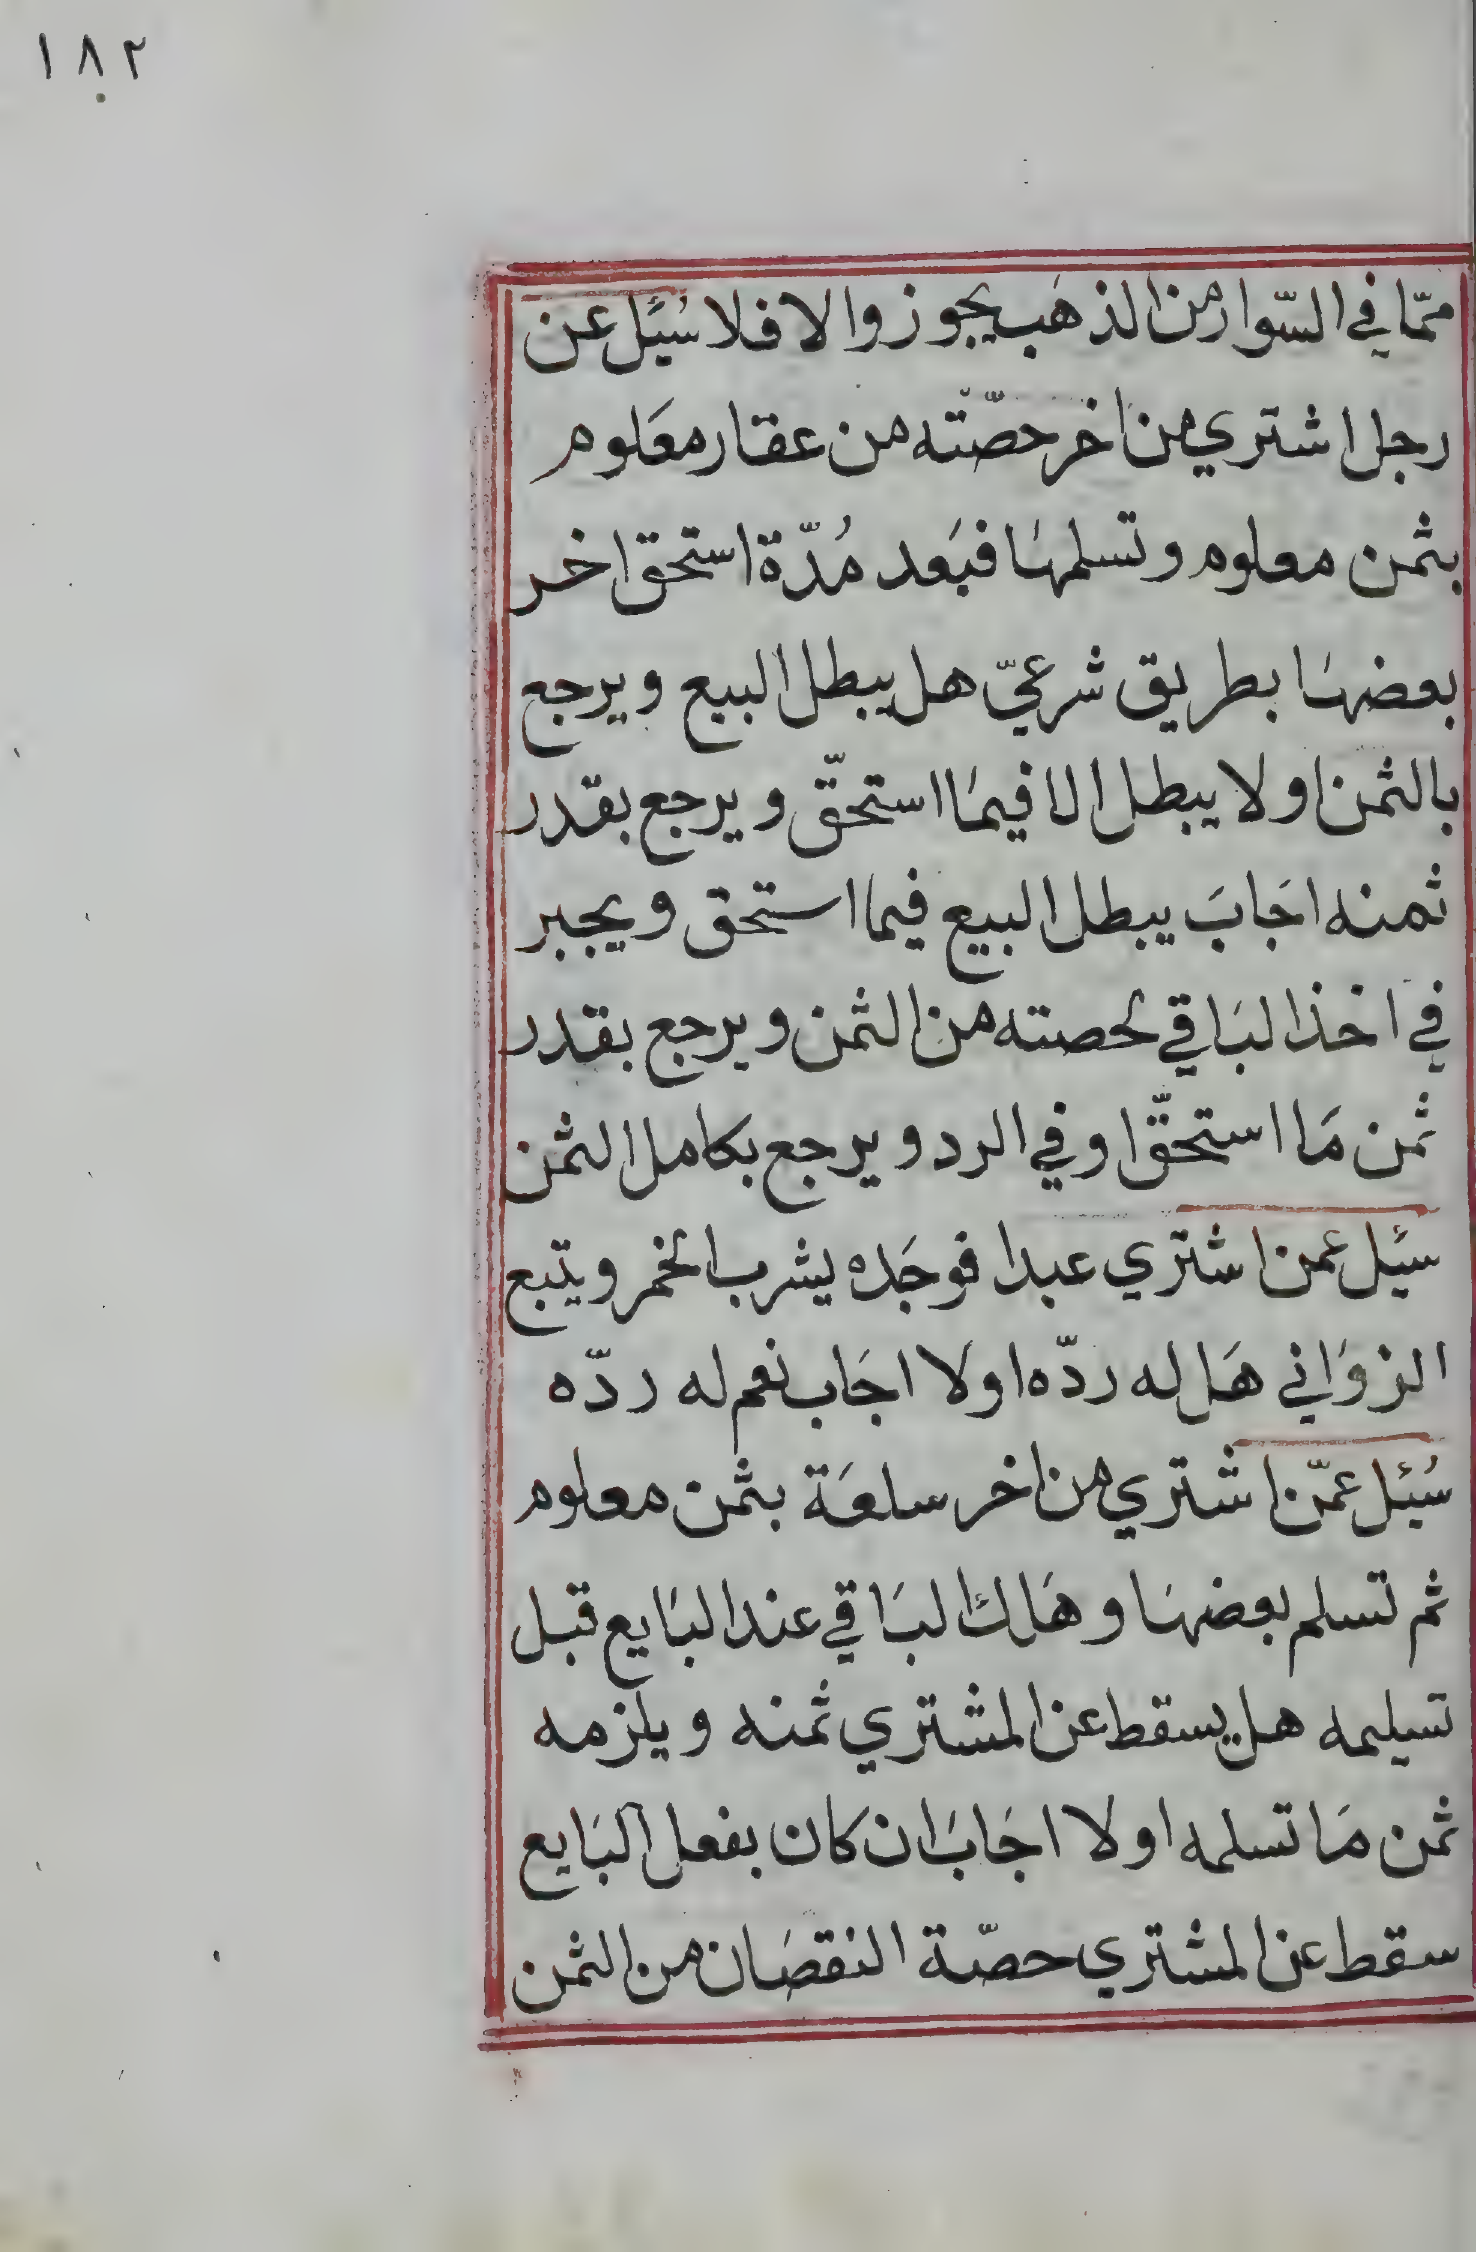 ١٨٢
ممّا في السّوار من الذهَب يجوز والا فلا سُئَل عن
رجل اشتري من اخر حصّته من عقار معَلوم
بثمن معلوم وتسلمهَا فبَعد مُدّة استحق اخر
بعضهَا بطريق شرعيّ هل يبطل البيع ويرجع
بالثمن او لا يبطل الا فيمَا استحقّ ويرجع بقدر
ثمنه اجَابَ يبطل البيع فيما استحق ويجبر
في اخذ البَاقي بحصته من الثمن ويرجع بقدر
ثمن مَا استحقّ او في الرد ويرجع بكامل الثمن
سئَل عمن اشتري عبدا فوجَده يشرب الخمر ويتبع
الزوَاني هَل له ردّه او لا اجَاب نعم له ردّه
سُئل عمّن اشتري من اخر سلعَة بثمن معلوم
ثم تسلم بعضهَا وهَلك البَاقي عند البَايع قبل
تسليمه هل يسقط عن المشتري ثمنه ويلزمه
ثمن مَا تسلمه او لا اجَابَ ان كان بفعل البَايع
سقط عن المشتري حصّة النقصَان من الثمن